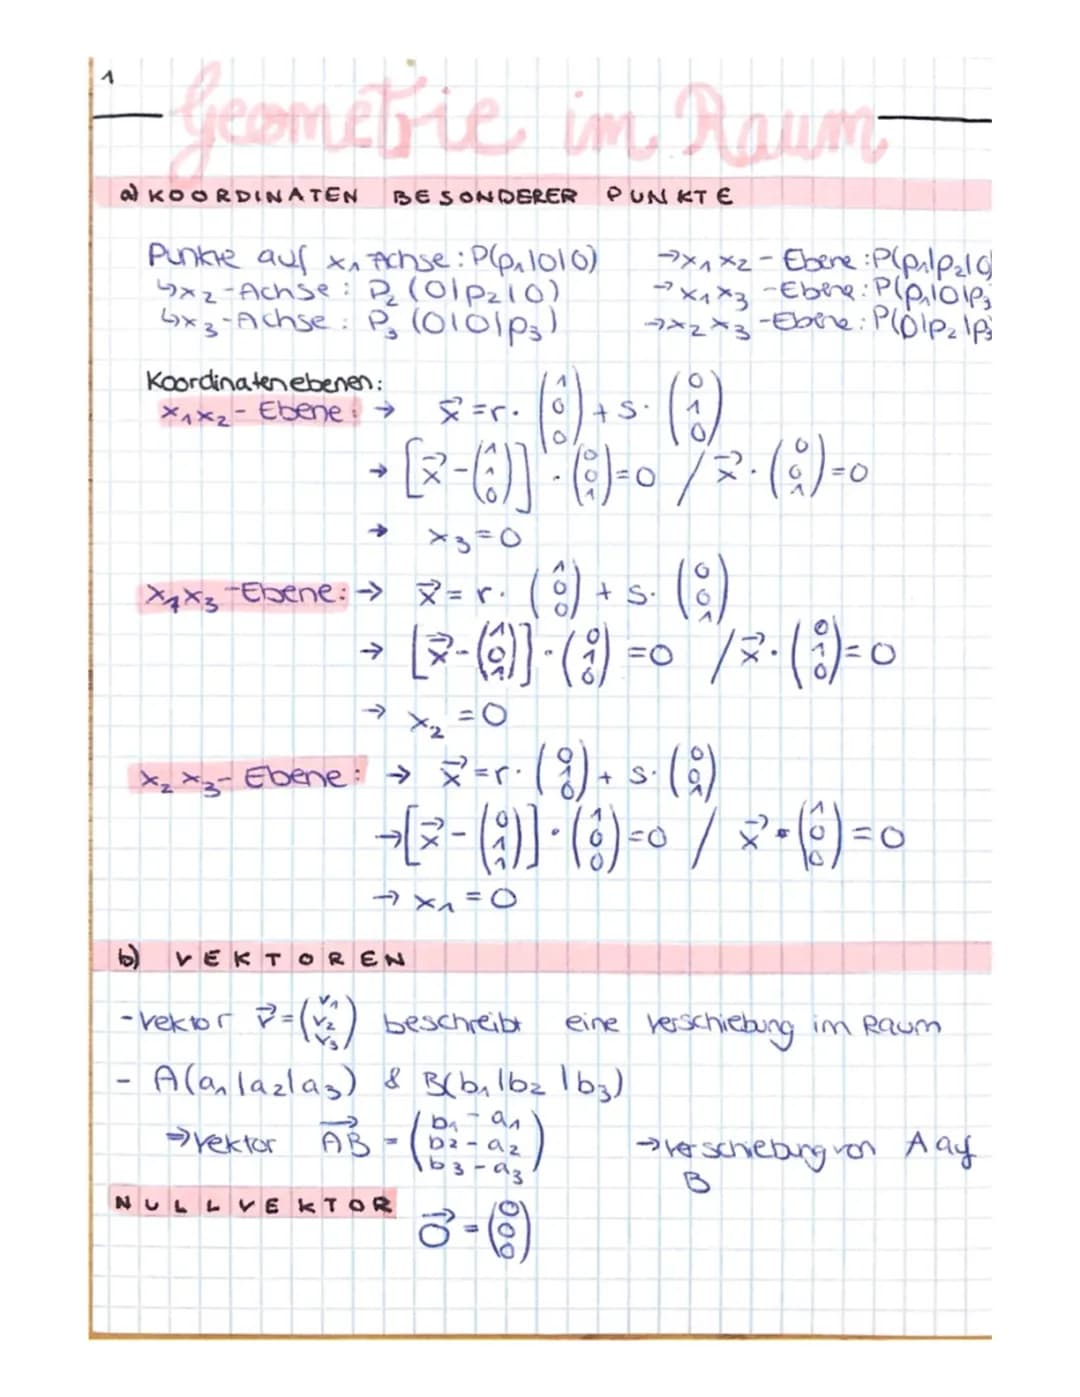 1
Geometrie im Raum
a) KOORDINATEN BESONDERER PUNKTE
Punkte auf x₁ Achse: P(p₁|0|0) → x₁x₂ - Ebene: P(p₁|p₂|0
↳ x₂-Achse: P₂ (0|p₂|0) → x₁x₃ -Ebene: P(p₁|0|p₃
↳ x₃-Achse: P₃ (0|0|p₃) → x₂x₃ -Ebene: P(0|p₂|p₃
Koordinatenebenen:
x₁x₂ - Ebene: → x⃗ = r · (1 0 0) + s · (0 1 0)
→ [x⃗ - (1 1 0)] · (0 0 1) = 0 / x⃗ · (0 0 1) = 0
→ x₃ = 0
x₁x₃ -Ebene: → x⃗ = r · (1 0 0) + s · (0 0 1)
→ [x⃗ - (1 0 1)] · (0 1 0) = 0 / x⃗ · (0 1 0) = 0
→ x₂ = 0
x₂x₃ - Ebene: → x⃗ = r · (0 1 0) + s · (0 0 1)
→ [x⃗ - (0 1 1)] · (1 0 0) = 0 / x⃗ · (1 0 0) = 0
→ x₁ = 0
b) VEKTOREN
- Vektor v⃗ = (v₁ v₂ v₃) beschreibt eine Verschiebung im Raum
- A(a₁|a₂|a₃) & B(b₁|b₂|b₃)
→ Vektor AB⃗ = (b₁ - a₁ b₂ - a₂ b₃ - a₃) → Verschiebung von A auf
B
NULLVEKTOR
o⃗ = (0 0 0)